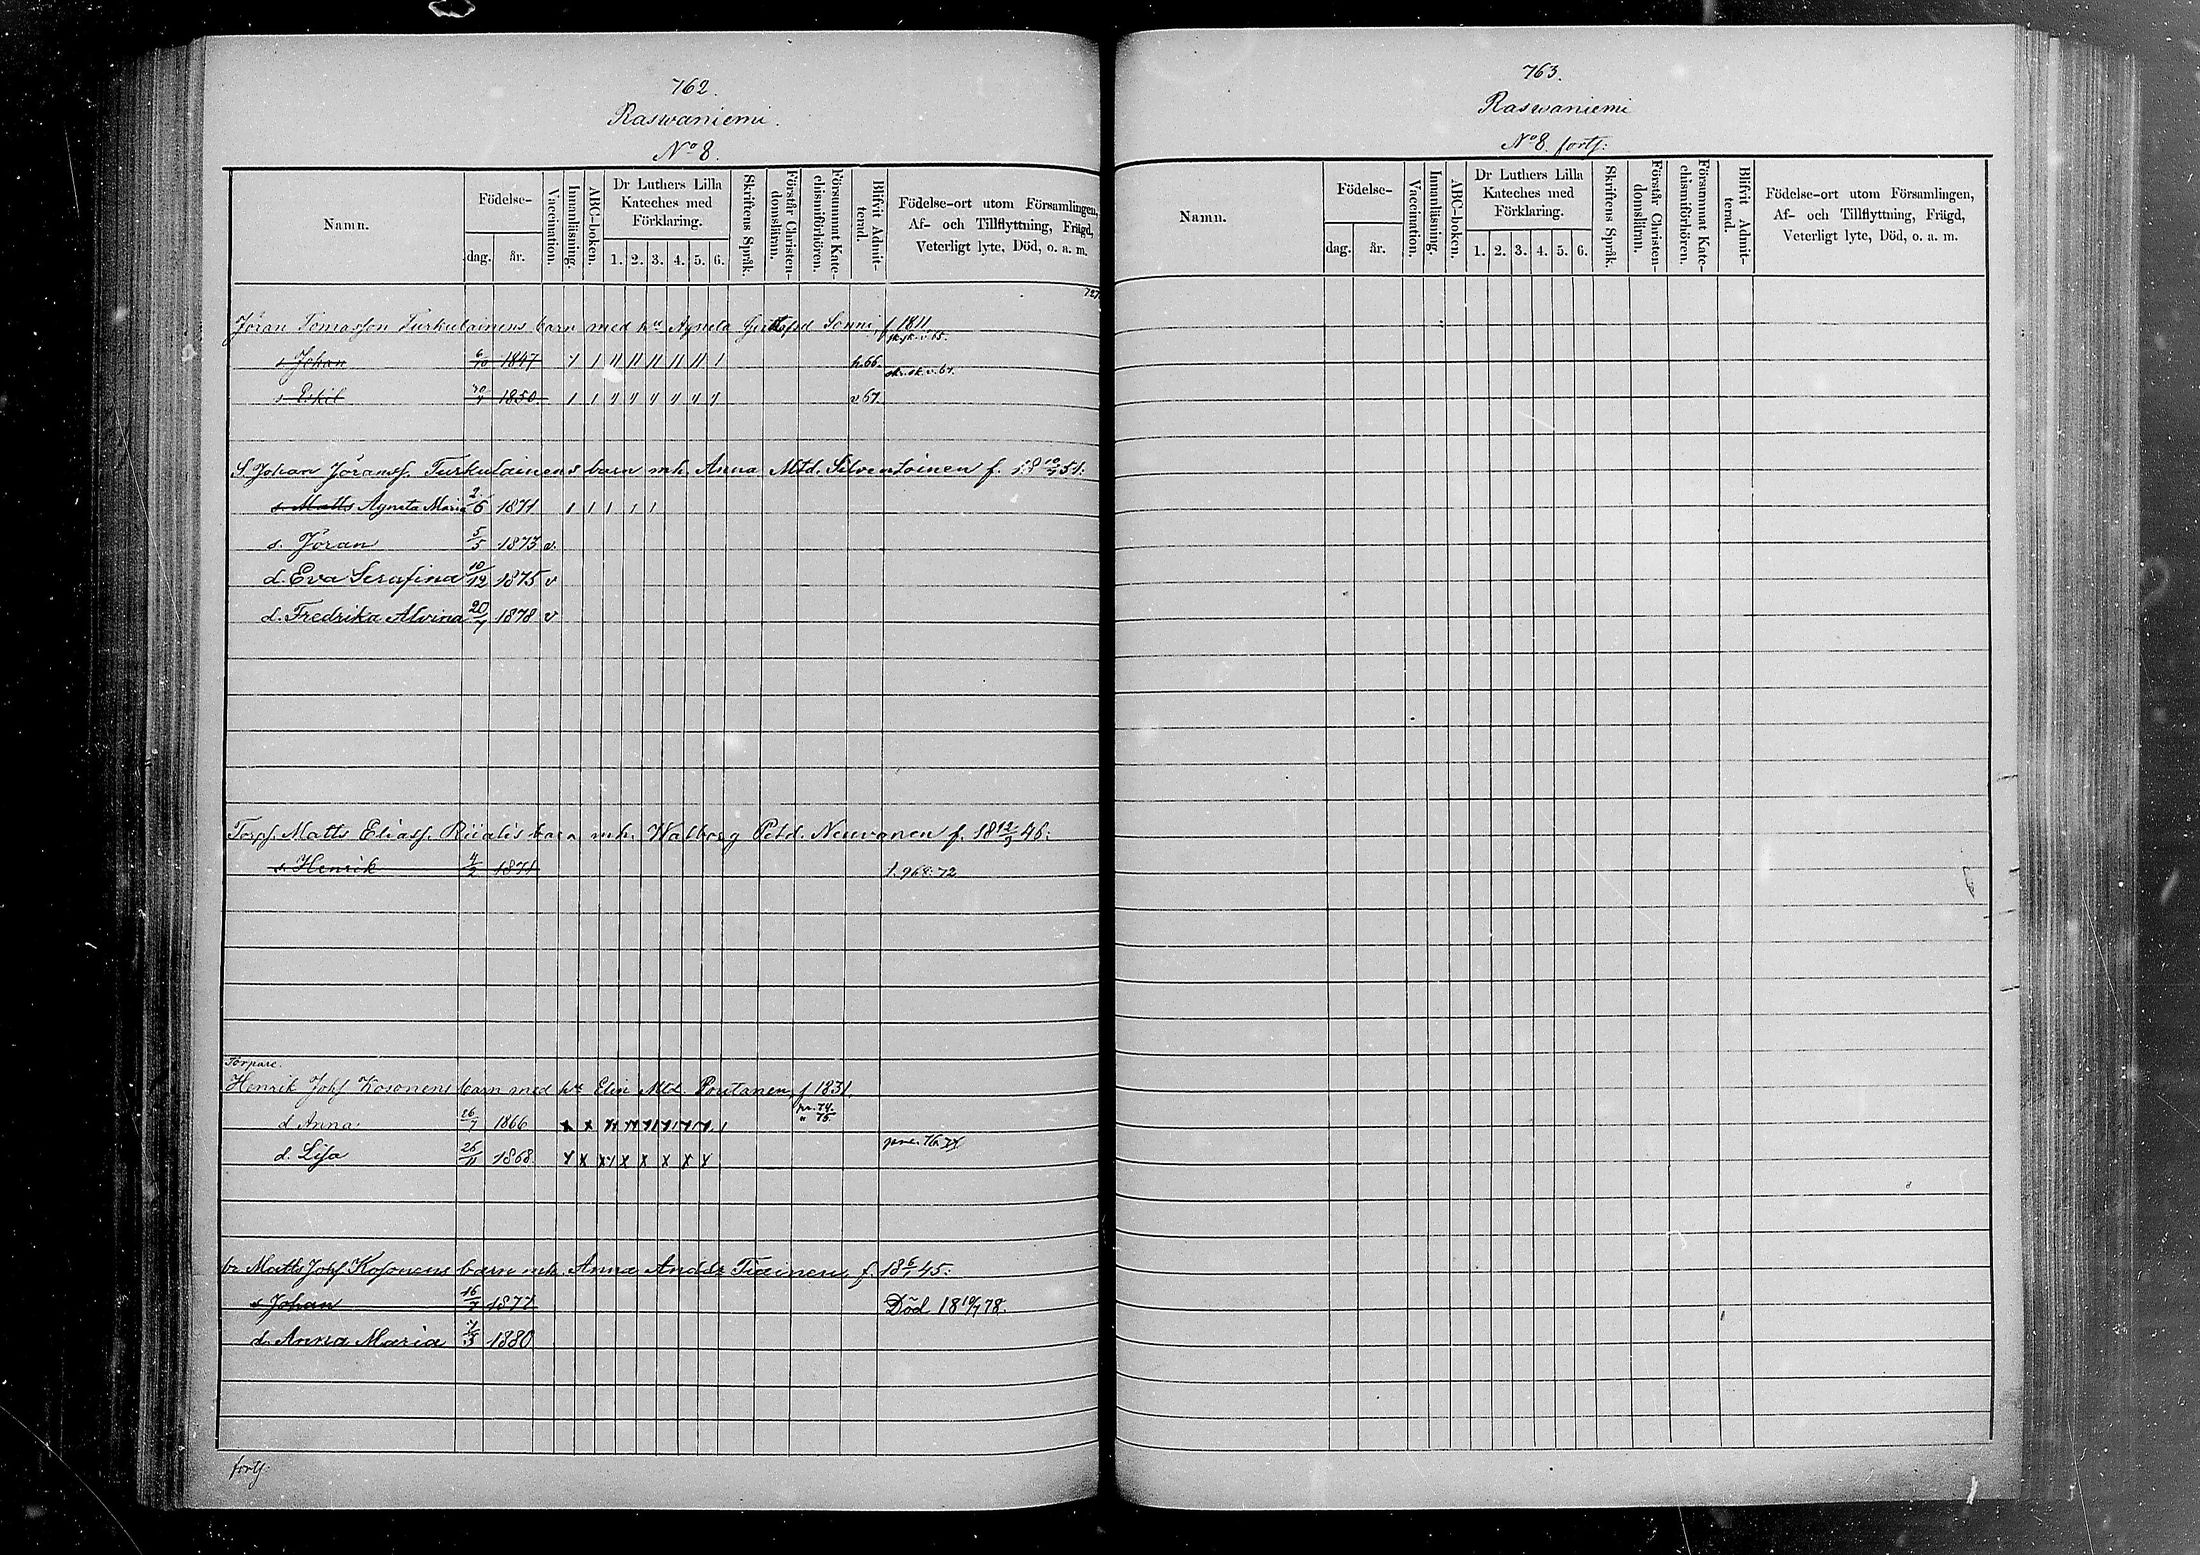 762.
Raswaniemi.
No 8.
Namn.
Födelse-
dag. år.
Vaccination.
Innanläsning.
ABC-boken.
Dr Luthers Lilla
Kateches med
Förklaring.
1. 2. 3. 4. 5. 6.
Skriftens Språk.
Förstår Christen-
domsläran.
Försummat Kate-
chismiförhören.
Blifvit Admit-
terad.
Födelse-ort utom Församlingen,
Af- och Tillflyttning, Frägd,
Veterligt lyte, Död, o. a. m.
727
Jöran Tomasson Turkulainens barn med hu Agneta Sonni, f 1811
s Johan 6/10 1847 h.66.
s Eskil 1850. v 67.
S. Johan Jöransf. Turkulainens barn mh. Anna Mtd. Silventoinen f. 18 10/7 51.
s. Matts Agneta Maria 2/6 1871
s. Jöran 5/5 1873 v.
d. Eva Serafina 10/12 1875 v
d. Fredrika Alvina 20/7 1878 v
Torp. Matts Eliasf. Riialis barn mh. Walborg Petd. Neuvonen f. 18 12/9 46.
s. Henrik 4/2 1871 1.968.72
Torpare.
Henrik Johf Kosonens barn med hu Elin Mtd. Poutanen, f 1831.
pr. 74.
" 75.
d Anna 26/7 1866
d. Lisa 25/11 1868
br Matts Johf Kosonens barn mh. Anna Andsdr Tiainen f. 18 6/1 45.
s Johan 16/7 1877 Död 18 10/7 78.
d. Anna Maria 7/3 1880
forts.
763.
Raswaniemi
No 8. forts:
Namn.
Födelse-
dag. år.
Vaccination.
Innanläsning.
ABC-boken.
Dr Luthers Lilla
Kateches med
Förklaring.
1. 2. 3. 4. 5. 6.
Skriftens Språk.
Förstår Christen-
domsläran.
Försummat Kate-
chismiförhören.
Blifvit Admit-
terad.
Födelse-ort utom Församlingen,
Af- och Tillflyttning, Frägd,
Veterligt lyte, Död, o. a. m.